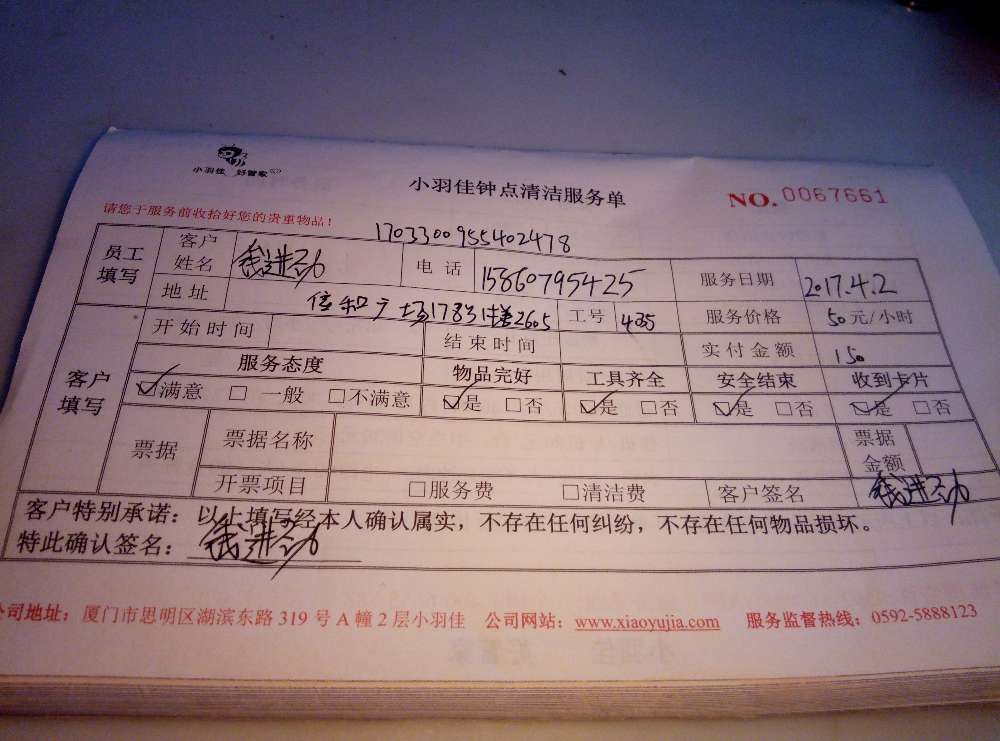 小羽佳 好管家
小羽佳钟点清洁服务单
NO.0067661
请您于服务前收拾好您的贵重物品！
1703300955402478
员工填写 客户姓名 钱进劲 电话 15860795425 服务日期 2017.4.2
地址 信和广场1783楼2605 工号 435 服务价格 50元/小时
客户填写 开始时间 结束时间 实付金额 150
服务态度 物品完好 工具齐全 安全结束 收到卡片
☑满意 □一般 □不满意 ☑是 □否 ☑是 □否 ☑是 □否 ☑是 □否
票据 票据名称 票据金额
开票项目 □服务费 □清洁费 客户签名 钱进劲
客户特别承诺：以上填写经本人确认属实，不存在任何纠纷，不存在任何物品损坏。
特此确认签名：钱进劲
公司地址：厦门市思明区湖滨东路319号A幢2层小羽佳 公司网站：www.xiaoyujia.com 服务监督热线：0592-5888123